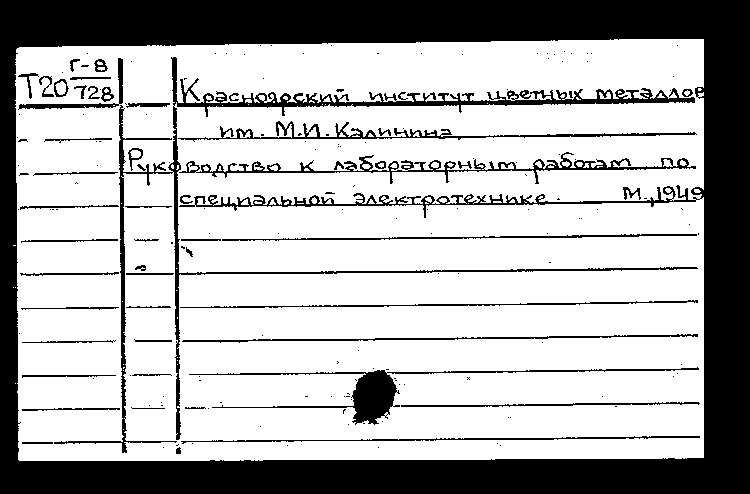 Г-8
Т20 728
Красноярский институт цветных металлов
им. М.И. Калинина.
Руководство к лабораторным работам по
специальной электротехнике. М., 1949